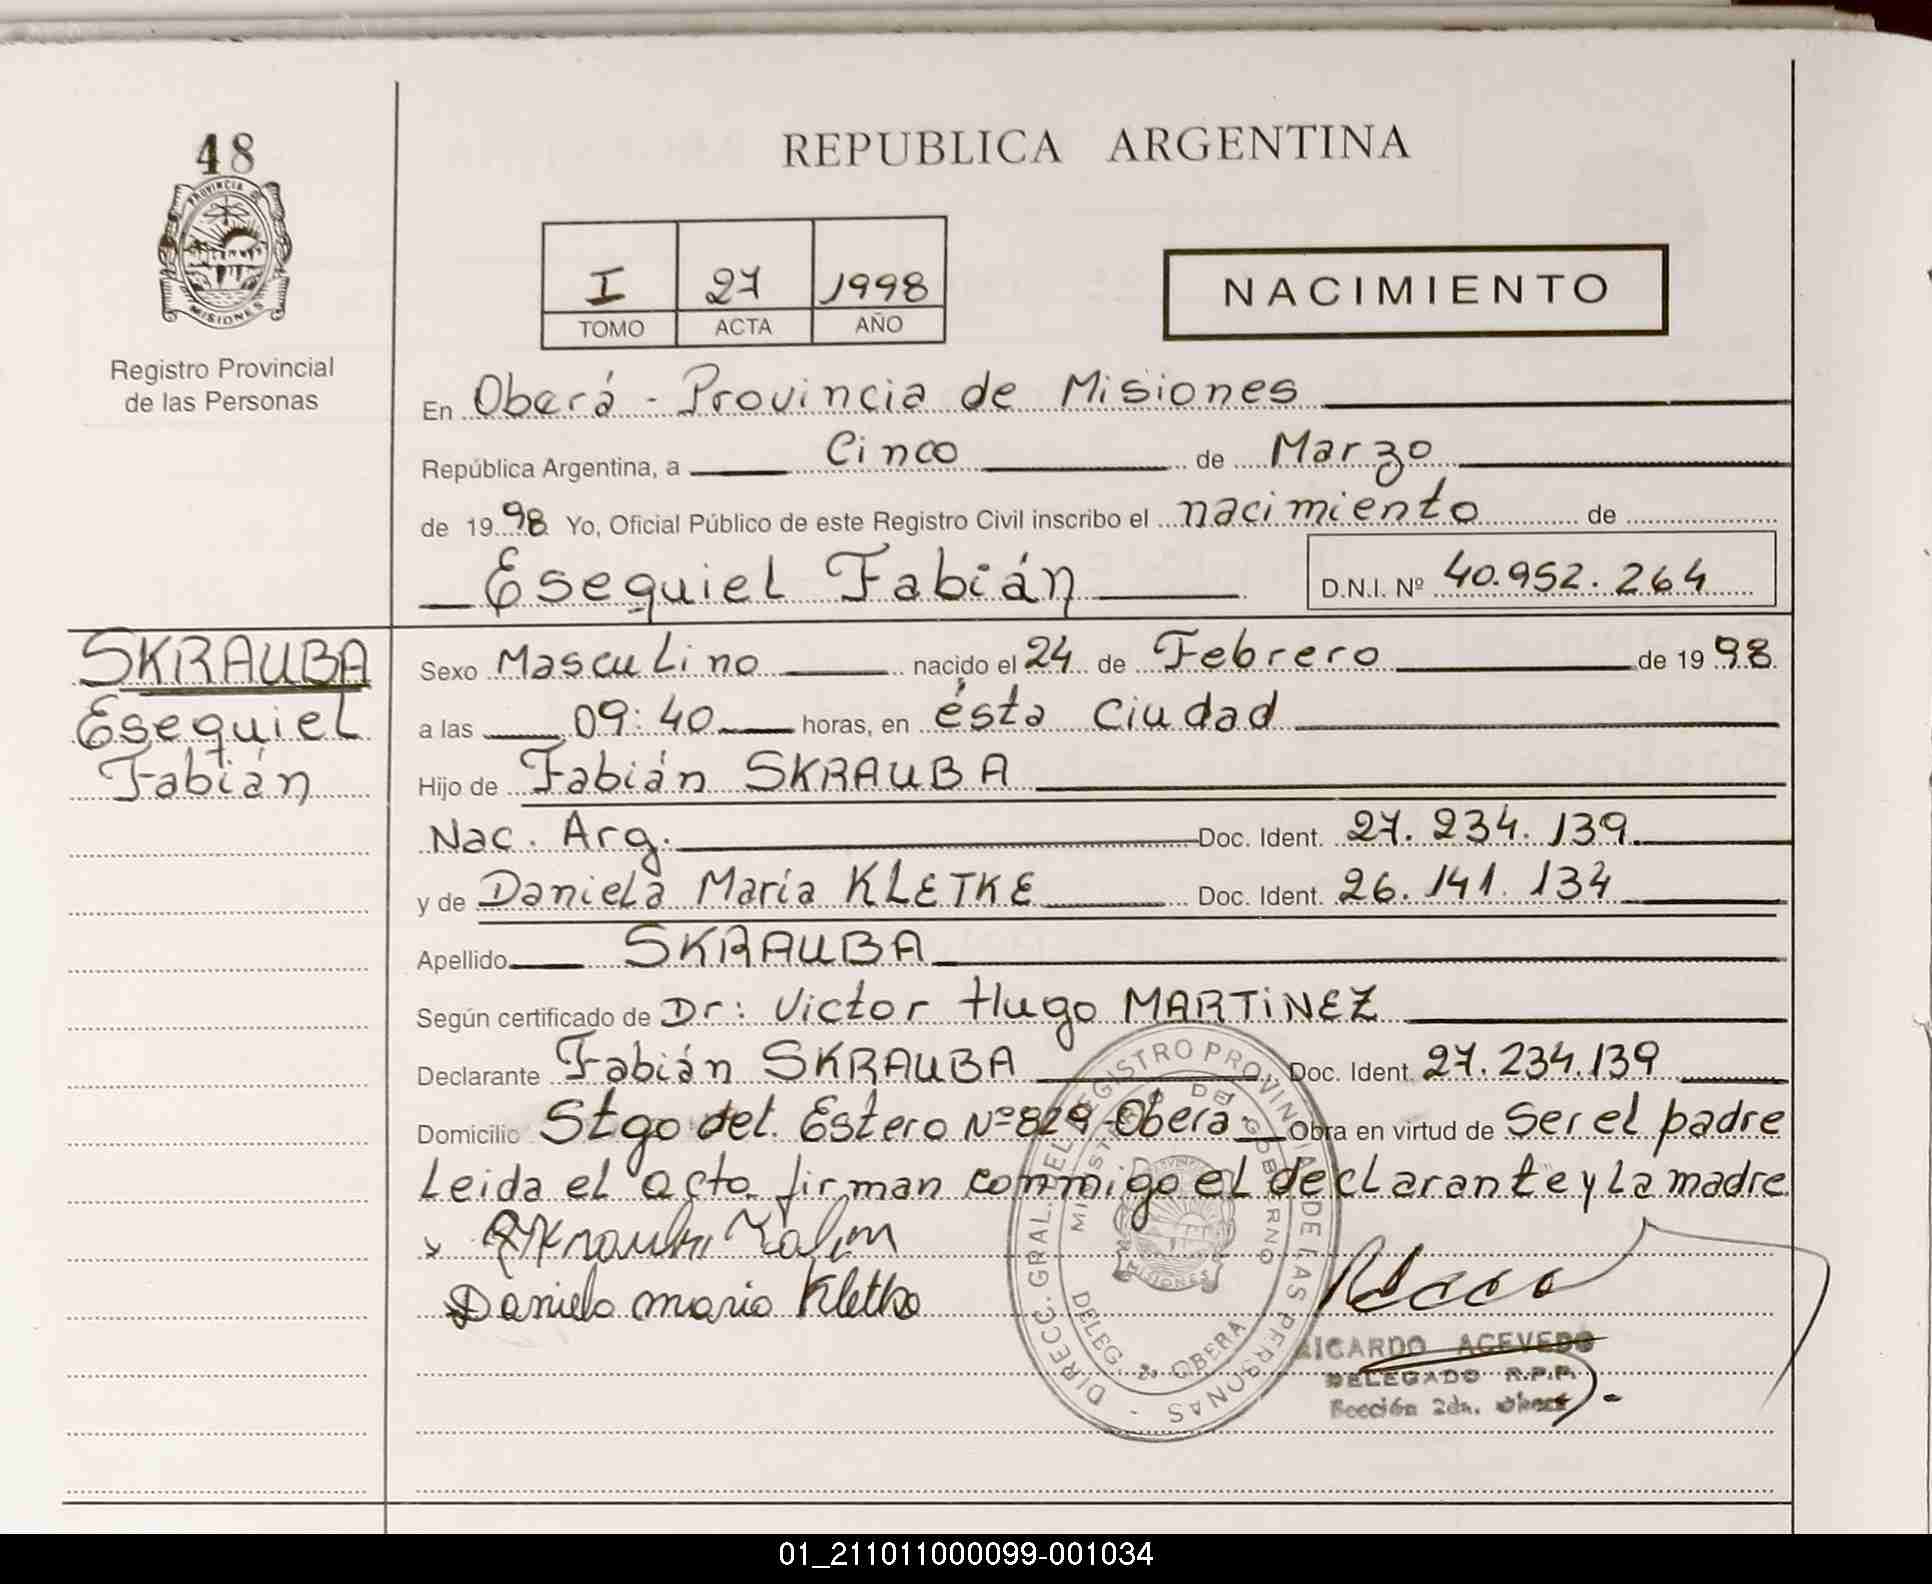 48
PROVINCIA DE
MISIONES
Registro Provincial
de las Personas
REPUBLICA ARGENTINA
I 27 1998
TOMO ACTA AÑO
NACIMIENTO
En Oberá - Provincia de Misiones
República Argentina, a Cinco de Marzo
de 1998 Yo, Oficial Público de este Registro Civil inscribo el nacimiento de
Esequiel Fabián D.N.I. Nº 40.952.264
SKRAUBA
Esequiel
Fabián
Sexo Masculino nacido el 24 de Febrero de 1998
a las 09:40 horas, en ésta Ciudad
Hijo de Fabián SKRAUBA
Nac. Arg. Doc. Ident. 27.234.139
y de Daniela María KLETKE Doc. Ident. 26.141.134
Apellido SKRAUBA
Según certificado de Dr: Victor Hugo MARTINEZ
Declarante Fabián SKRAUBA Doc. Ident. 27.234.139
Domicilio Stgo del. Estero Nº 829-Obera Obra en virtud de Ser el padre
Leida el acta firman conmigo el declarante y La madre
Daniela maria Kletke
DIRECC. GRAL. DEL REGISTRO PROVINCIAL DE LAS PERSONAS -
MINISTERIO DE GOBIERNO
MISIONES
DELEG. 2ª OBERA
RICARDO ACEVEDO
DELEGADO R.P.P.
Sección 2da. Oberá
01_211011000099-001034